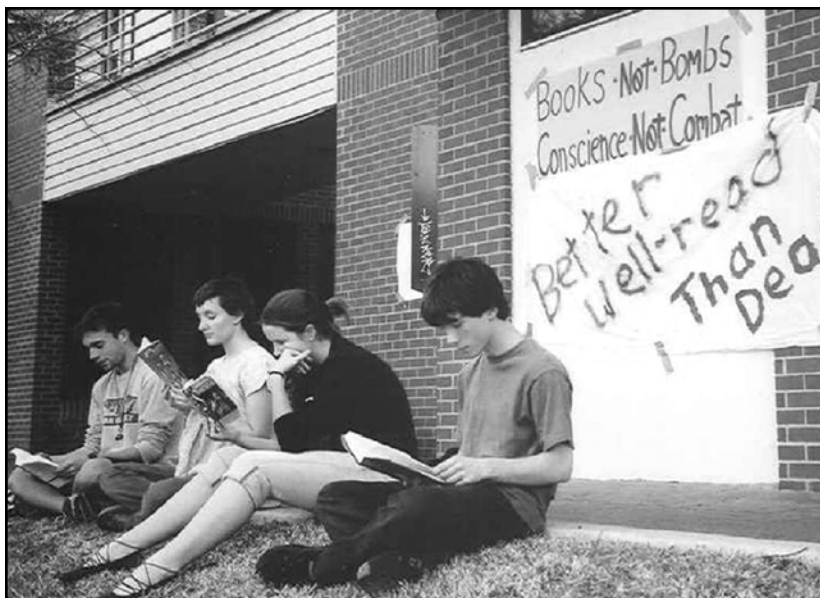 Books·Not·Bombs
Conscience·Not·Combat
Better
Well-read
Than
Dea